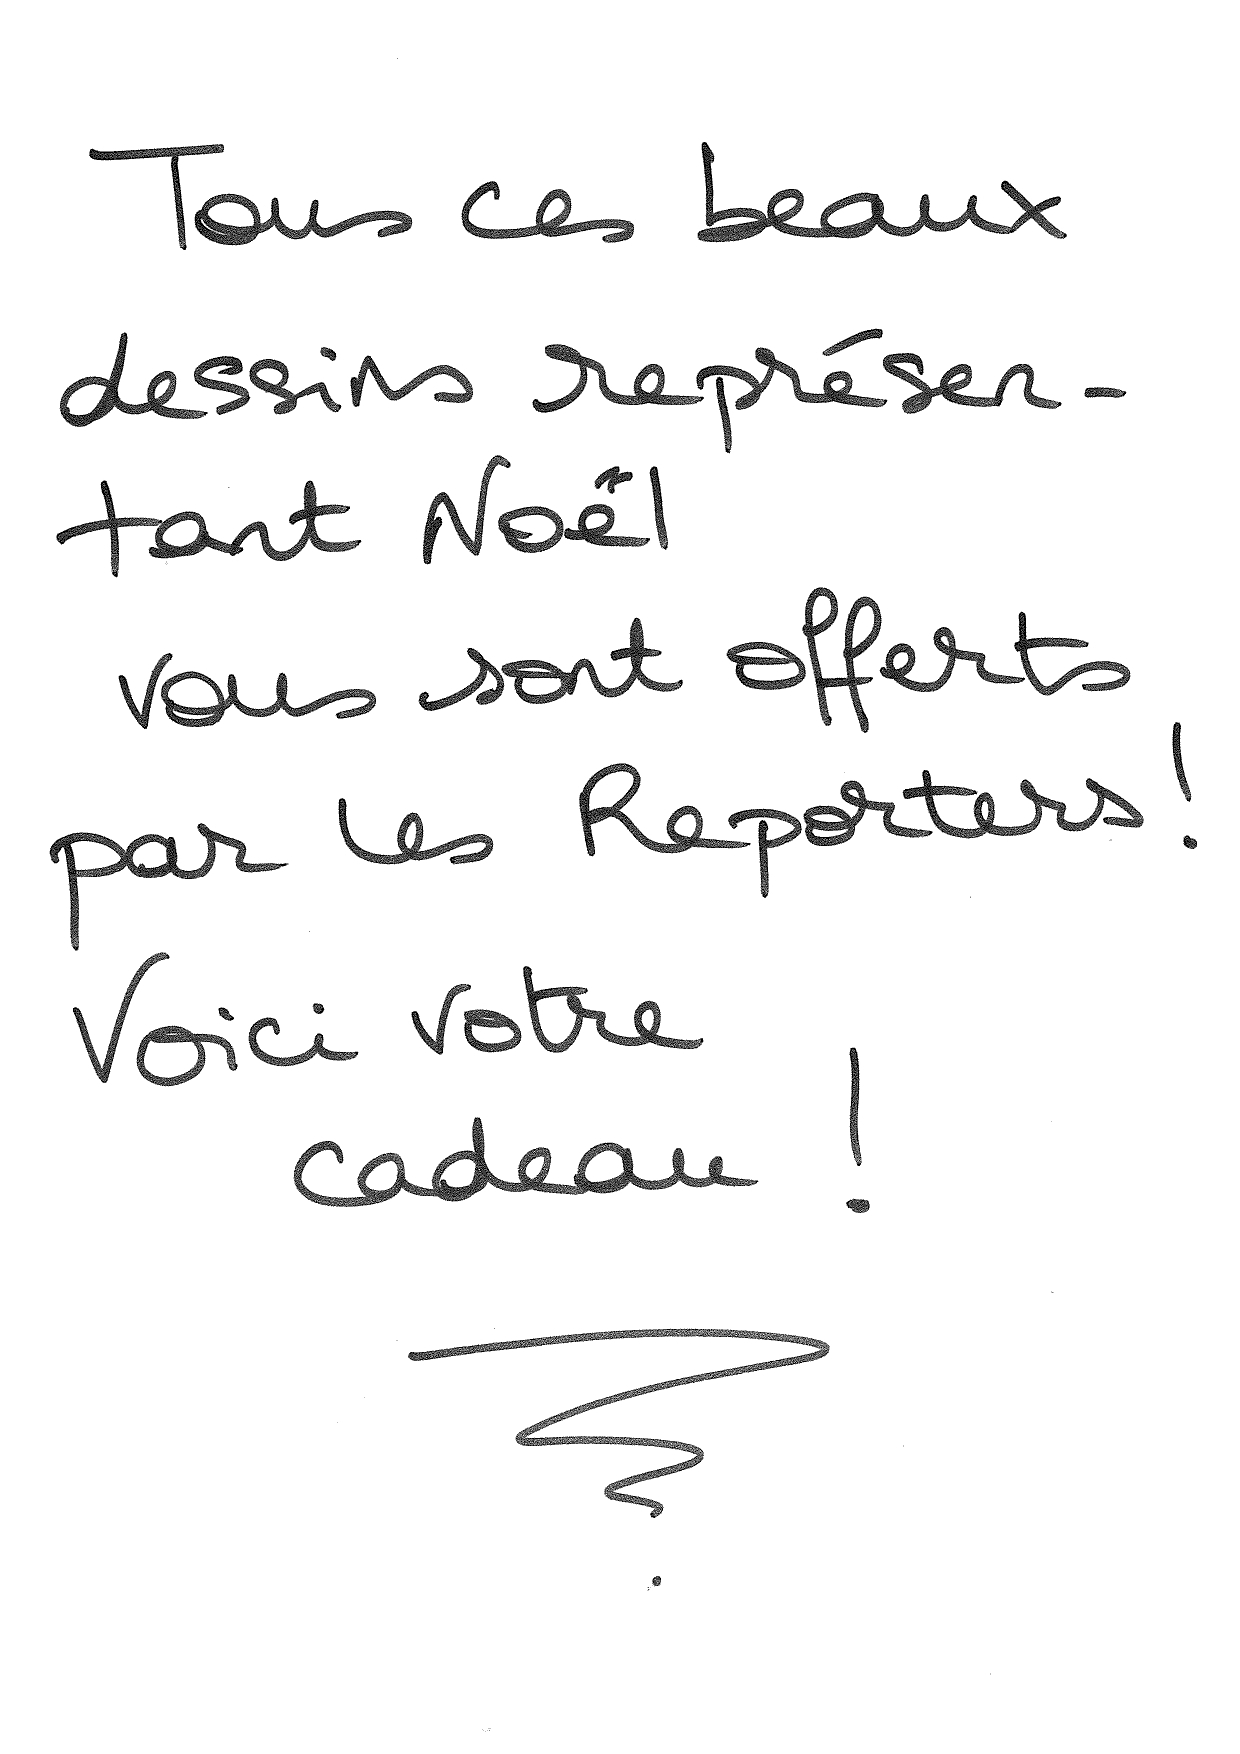 Tous ces beaux
dessins représen-
tant Noël
vous sont offerts
par les Reporters!
Voici votre
cadeau !